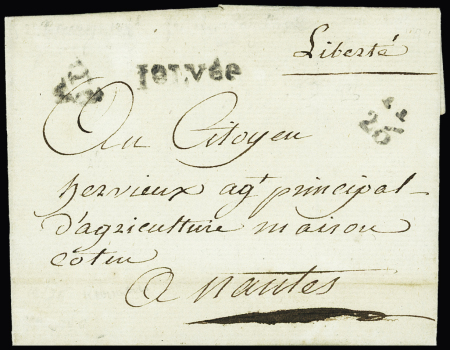 Liberté
1ere LVée
Au Citoyen
hervieux agt principal
d'agriculture maison
cotin
A nantes